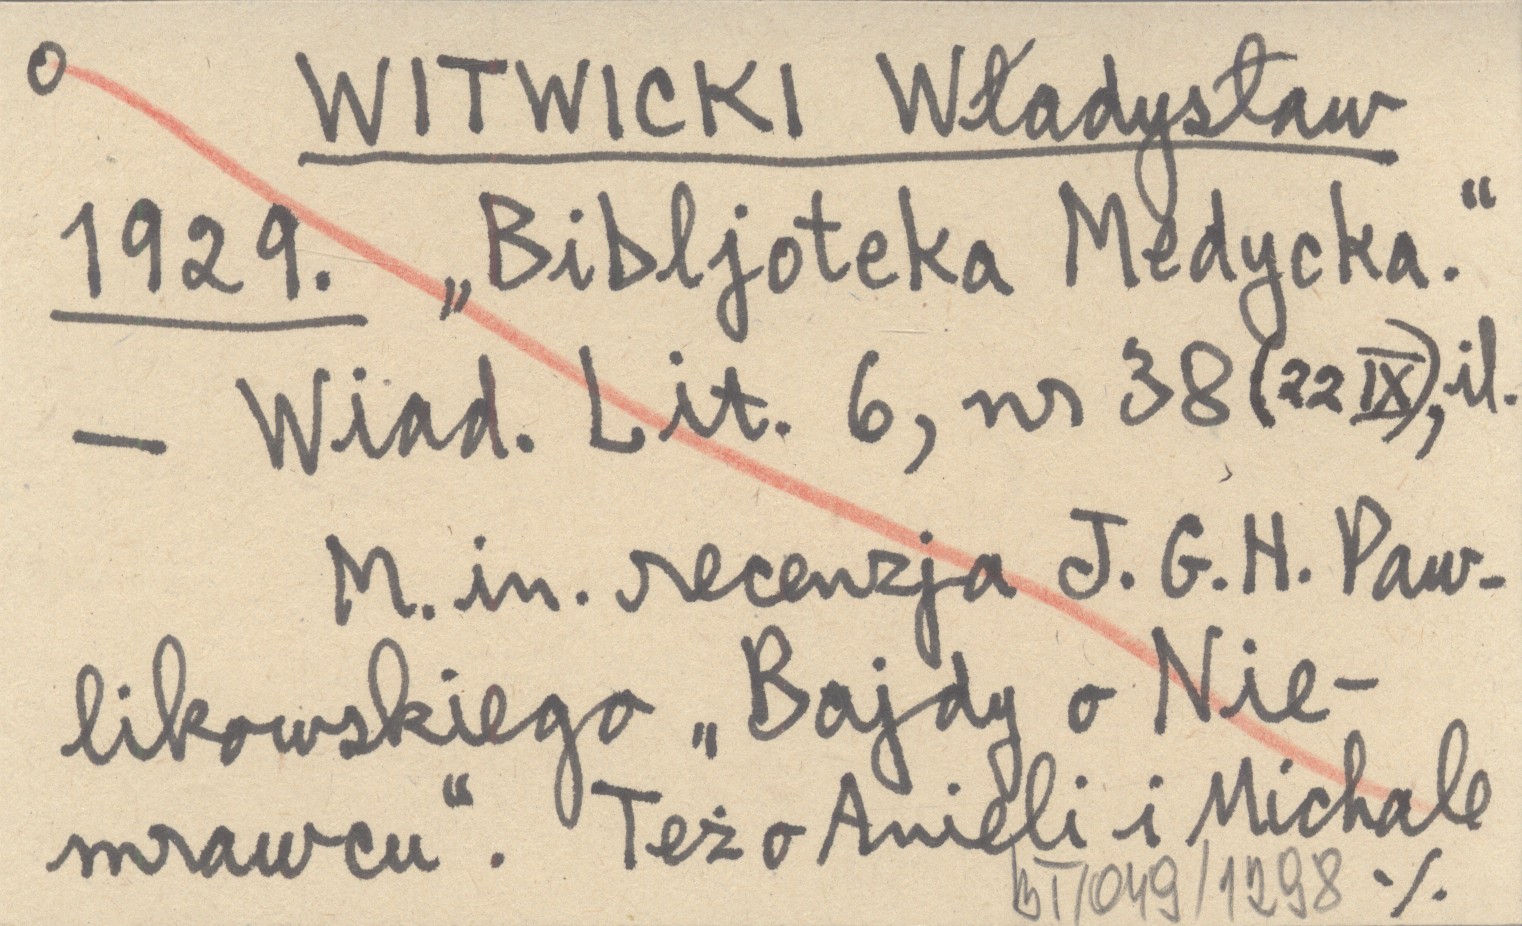 o WITWICKI Władysław
1929. „Bibljoteka Medycka.“
— Wiad. Lit. 6, nr 38 (22 IX), il.
M. in. recenzja J. G. H. Paw-
likowskiego „Bajdy o Nie-
mrawcu“. Też o Anieli i Michale
BT/049/1298 ·/.